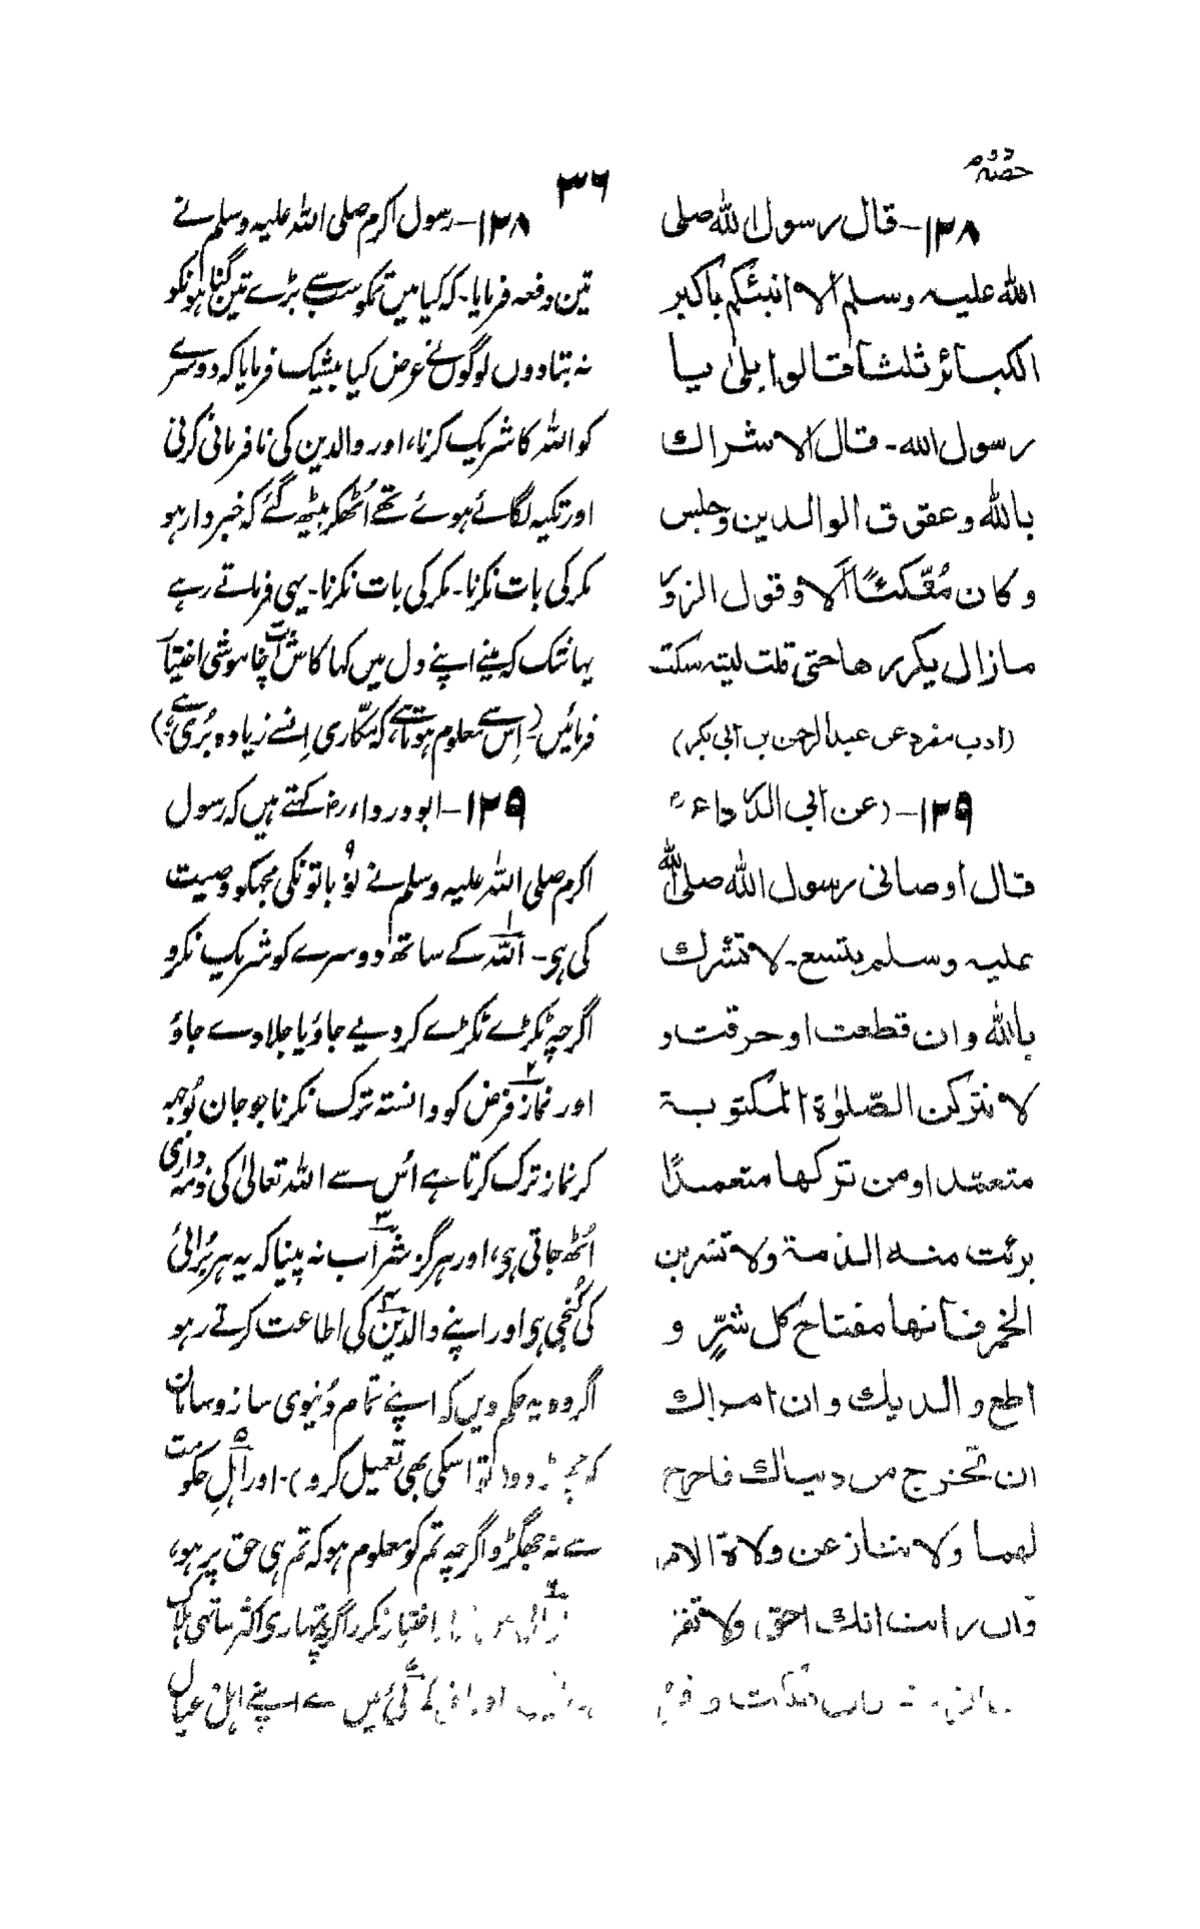 حصہ دوم
۳۶
۱۲۸—قال رسول الله صلى
الله عليه وسلم الا انبئكم باكبر
الكبائر ثلثا قالوا بلى يا
رسول الله۔ قال الاشراك
بالله وعقوق الوالدين وجلس
وكان متكئا الا وقول الزور
مازال يكررها حتى قلت ليته سكت
(ادب مفرد عن عبدالرحمن بن ابي بكر)
۱۲۹—(عن ابي الدرداءرض)
قال اوصانى رسول الله صلى الله
عليه وسلم بتسع۔ لا تشرك
بالله وان قطعت او حرقت و
لا تتركن الصّلوٰة المكتوبة
متعمّدا ومن تركها متعمدًا
برئت منه الذمة ولا تشربن
الخمر فانها مفتاح كل شرٍّ و
اطع والديك وان امراك
ان تخرج من دنياك فاخرج
لهما ولا تنازعن ولاة الامر
وان رايت انك احق ولا تفر
۱۲۸—رسول اکرم صلی اللہ علیہ وسلم نے
تین دفعہ فرمایا۔ کہ کیا میں تمکو سب سے بڑے تین گناہونکو
نہ بتادوں لوگوں نے عرض کیا بیشک فرمایا کہ دوسرے
کو اللہ کا شریک کرنا، اور والدین کی نافرمانی کرنی
اور تکیہ لگائے ہوئے تھے اُٹھکر بیٹھ گئے کہ خبردار ہو
مکر کی بات نکرنا۔ مکر کی بات نکرنا۔ یہی فرماتے رہے
یہانتک کہ مینے اپنے دل میں کہا کاش آپ خاموشی اختیار
فرمائیں۔ (اس سے معلوم ہوتا ہے، کہ مکّاری اِنسے زیادہ بُری ہے)
۱۲۹—ابودرداءرض کہتے ہیں کہ رسول
اکرم صلی اللہ علیہ وسلم نے نو۹ باتونکی مجھکو وصیت
کی ہی۔ ۱اللہ کے ساتھ دوسرے کو شریک نکرو
اگرچہ ٹکڑے ٹکڑے کردیے جاؤ یا جلادے جاؤ
اور ۲نماز فرض کو دانستہ ترک نکرنا جو جان بوجہہ
کر نماز ترک کرتا ہے اُس سے اللہ تعالیٰ کی ذمہ داری
اُٹھ جاتی ہی، اور ہرگز ۳شراب نہ پینا کہ یہ ہر بُرائی
کی کُنجی ہی اور اپنے ۴والدین کی اطاعت کرتے رہو
اگر وہ یہ حکم دیں کہ اپنے تمام دُنیوی ساز و سامان
کو چھوڑ دو (تو اسکی بھی تعمیل کرو)۔ اور ۵اہل حکومت
سے نہ جھگڑو اگرچہ تم کو معلوم ہو کہ تم ہی حق پر ہو،
اختیار نکرو اگرچہ تمہاری اکثر ساتھی ہلاک
اور اپنی کمائی میں سے اپنے اہل عیال